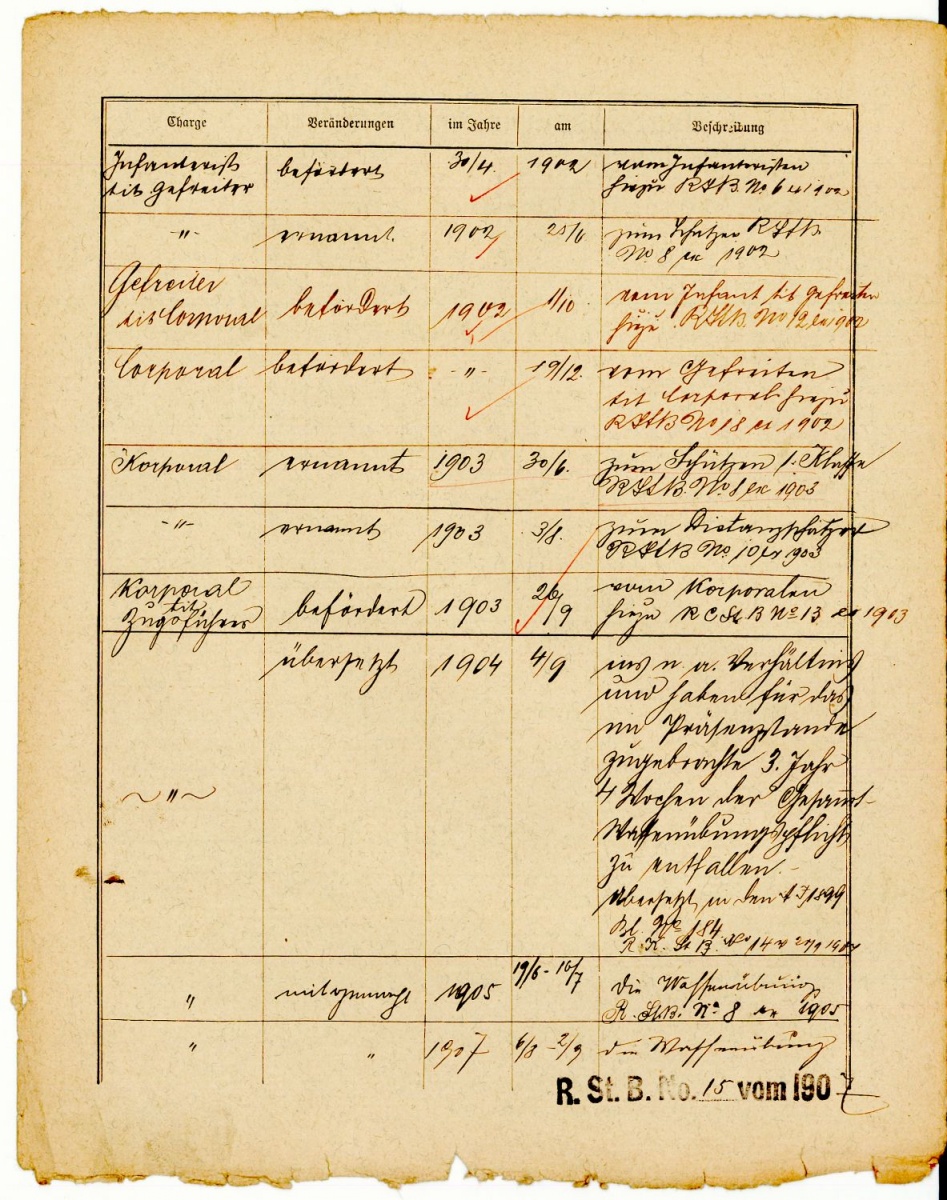 Charge Veränderungen im Jahre am Beschreibung
Infanterist befördert 30/4. 1902 vom Infanteristen
tit Gefreiter hiezu R.St.B. No 6 1902
-"- ernannt. 1902 /6 zum Schätzer R.St.B.
No. 8 ex 1902
Gefreiter
tit Corporal befördert 1902 1/10 vom Infant tit Gefreiten
hiezu R.St.B. No 12 ex 1902
Corporal befördert -"- 19/12. vom Gefreiten
tit Corporal hiezu
R.St.B No 18 ex 1902
Korporal ernannt 1903 30/6. zum Schützen I. Klasse
R.St.B. No. 8 ex 1903
-"- ernannt 1903 3/8. zum Distanzschätzer
R.St.B No. 10 ex 1903
Korporal
tit
Zugsführer befördert 1903 26/9 vom Korporalen
hiezu R C St. B No 13 ex 1903
übersetzt 1904 4/9 ins n. a. Verhältnis
und haben für das
im Präsenzstande
zugebrachte 3. Jahr
~"~ 4 Wochen der Gesammt-
Waffenübungspflicht
zu entfallen.-
Übersetzt in den 1899
Bl. No 184
R. K. St B. No 14 v
" mitgemacht 1905 19/6 - 16/7 die Waffenübung
R. St.B. No 8 ex 1905
" " 1907 6/8 - 2/9 die Waffenübung
R. St. B. No. 15 vom 1907